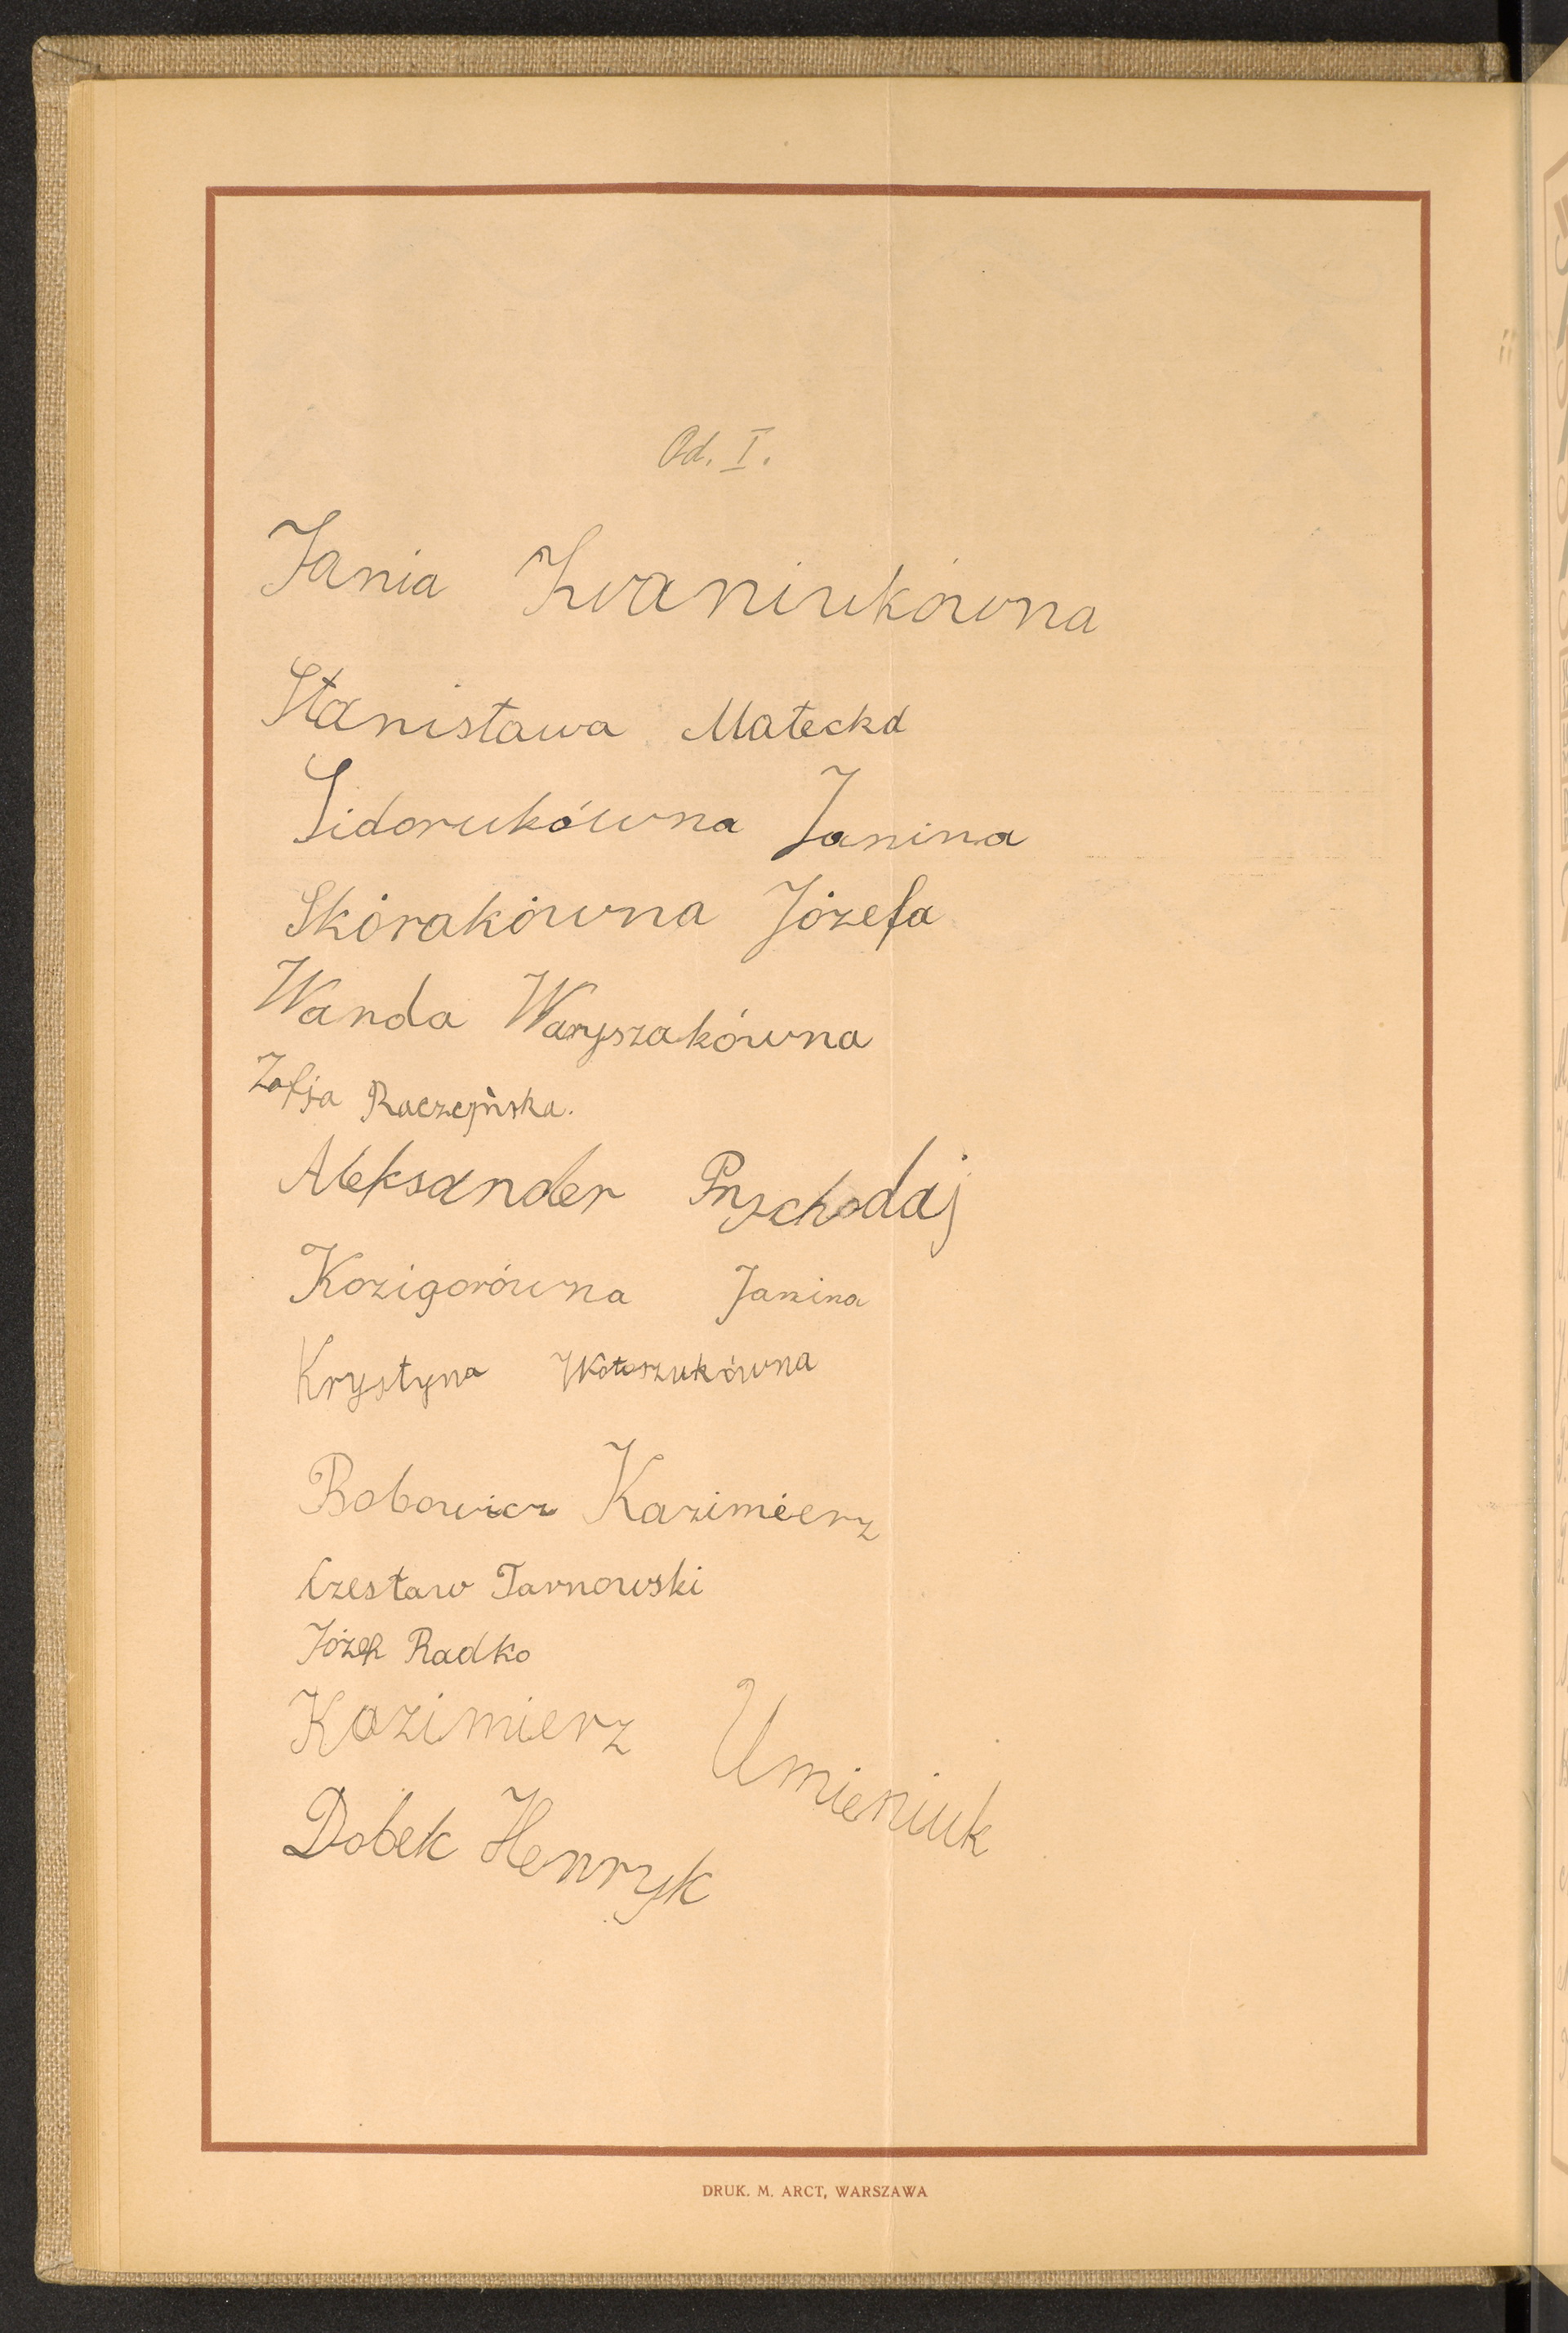 Od. I.
Jania Iwaniukówna
Stanisława Małecka
Sidorukówna Janina
Skórakówna Józefa
Wanda Waryszakówna
Zofja Raczejńska.
Aleksander Przchodaj
Kozigorówna Janina
Krystyna Wołoszukówna
Bobowicz Kazimierz
Czesław Tarnowski
Józek Radko
Kazimierz Umieniuk
Dobek Henryk
DRUK. M. ARCT, WARSZAWA